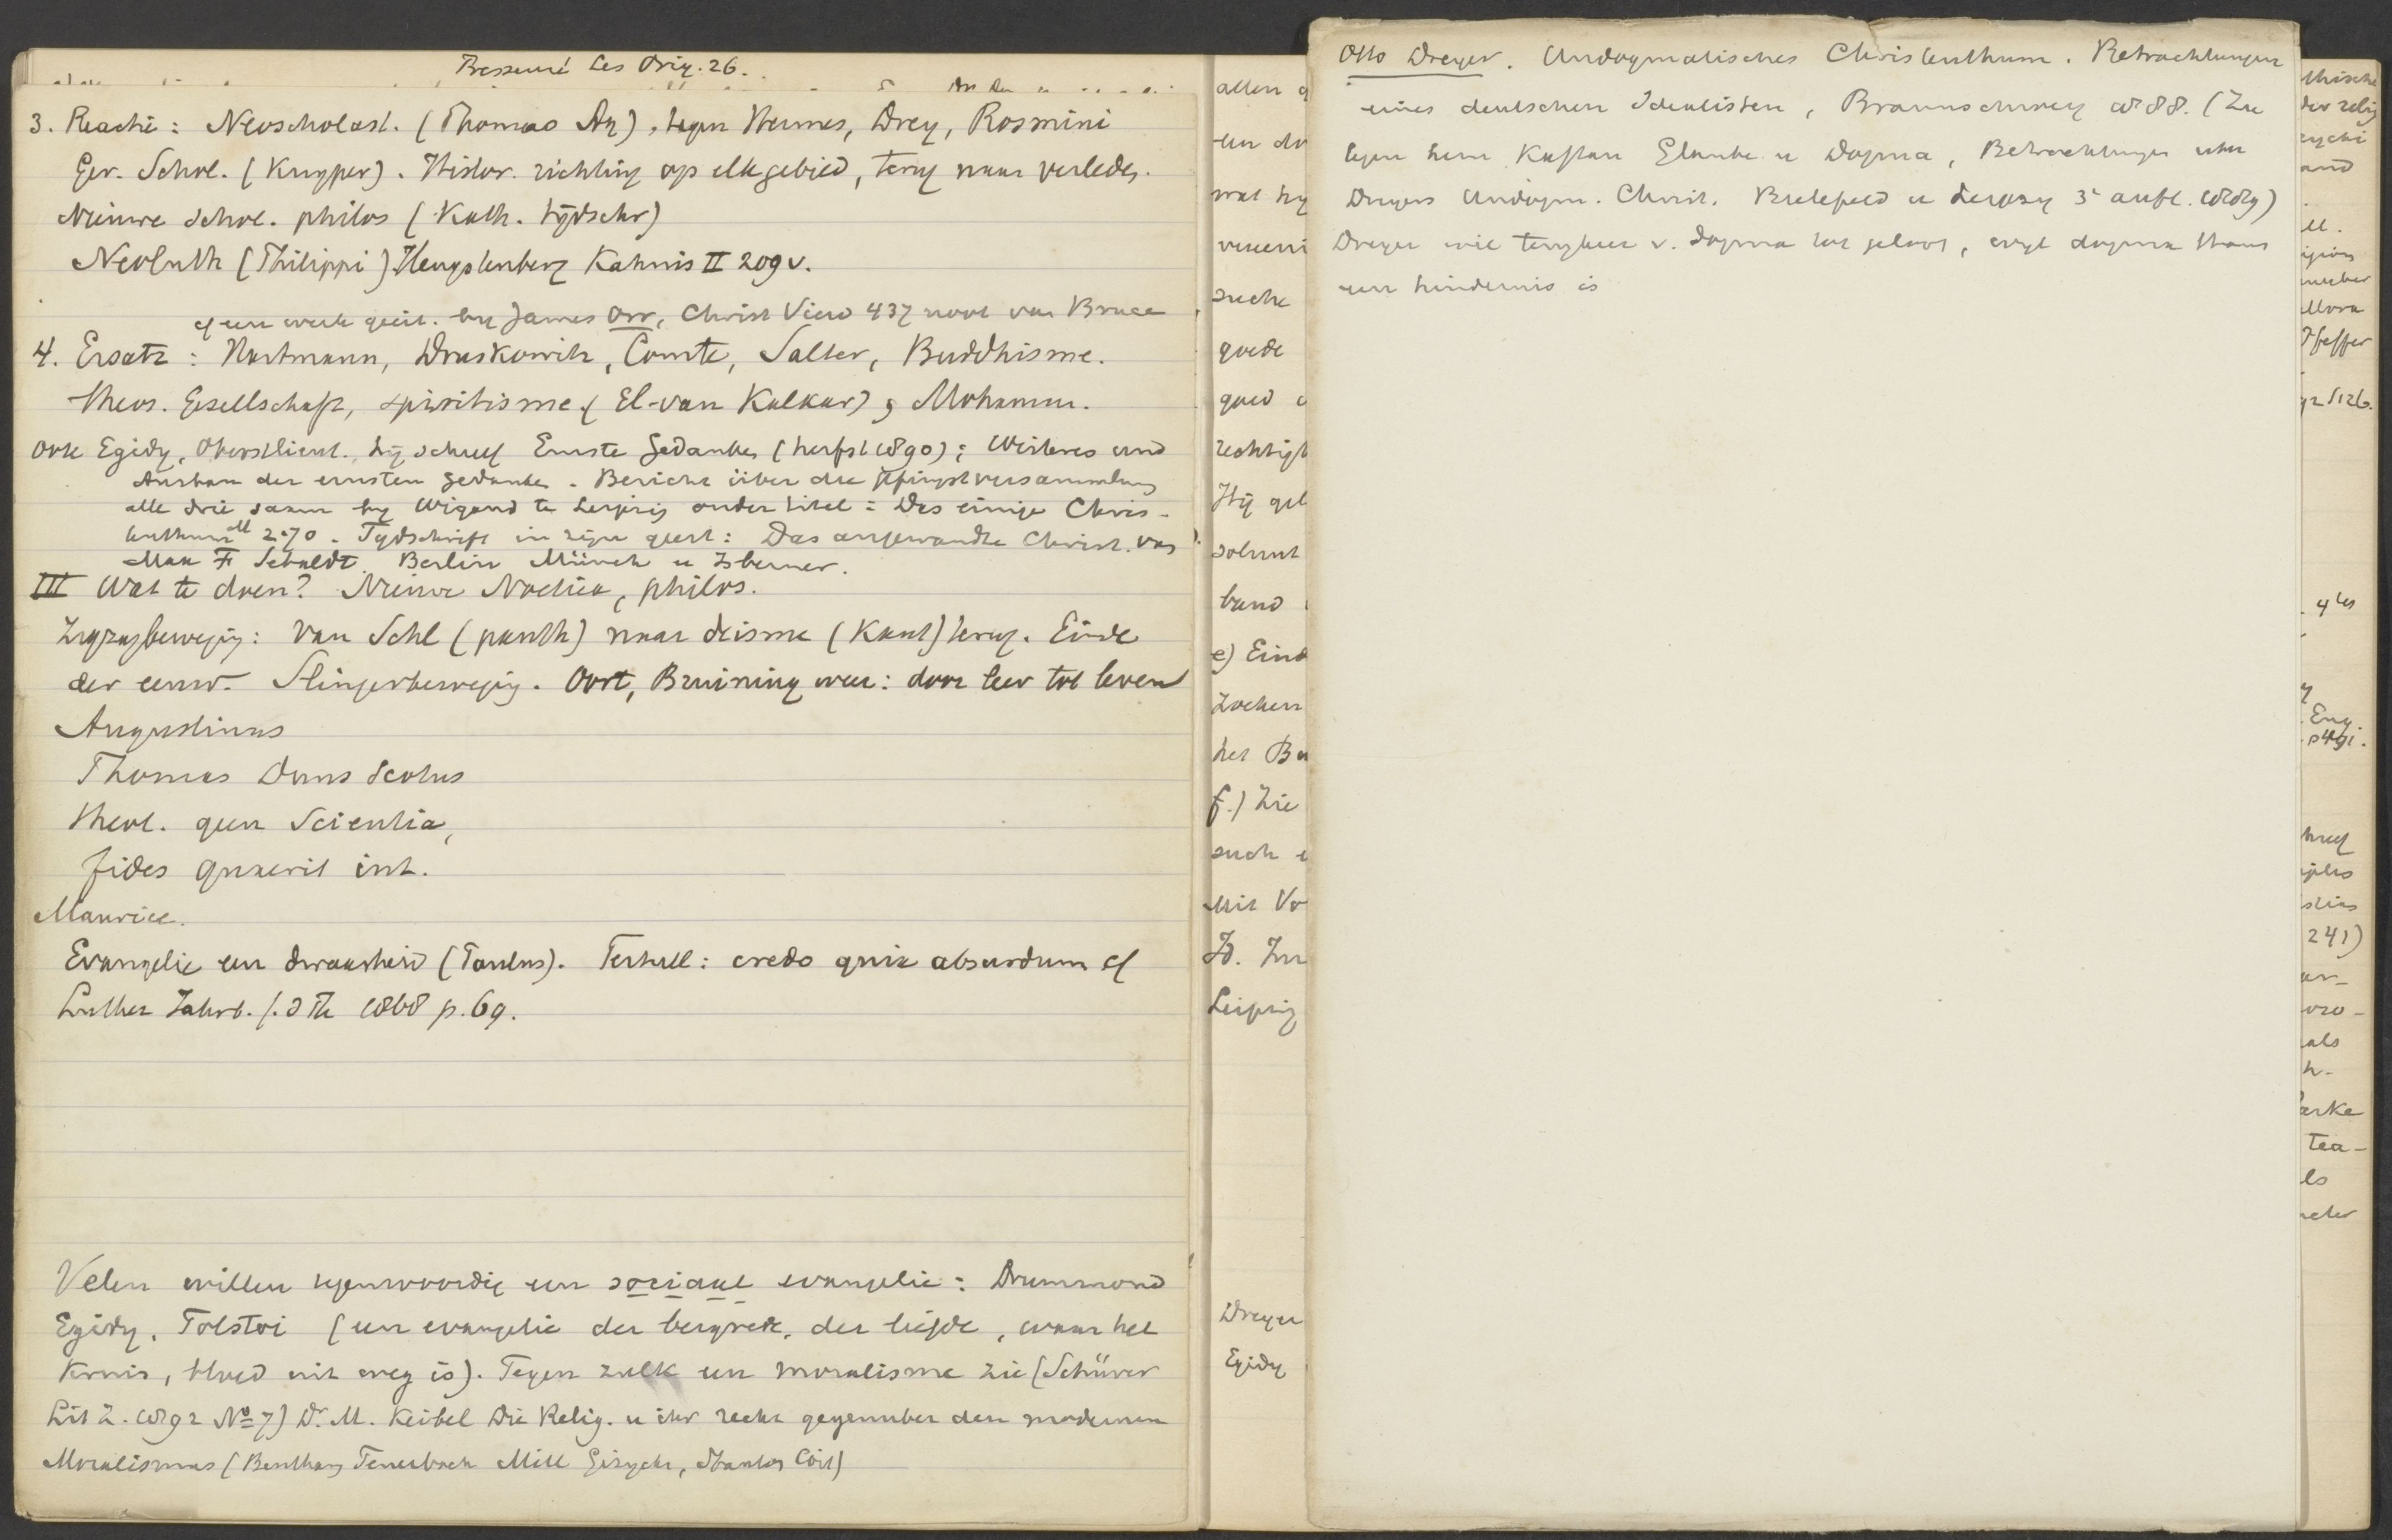 Pressensé Les Orig. 26.
3. Reactie: Neoscholast. (Thomas Aq), tegen Hermes, Drey, Rosmini
Ger. Schol. (Kuyper). Histor. richting op elk gebied, terug naar verleden.
Nieuwe schol. philos (Kath. tijdschr)
Neoluth (Philippi) Hengstenberg Kahnis II 209 v.
cf een werk gecit. by James Orr, Christ View 437 noot van Bruce
4. Ersatz: Hartmann, Druskowitz, Comte, Salter, Buddhisme.
theos. Gesellschaft, spiritisme (El-van Kalkar), Mohamm.
Ook Egidy, Oberstlieut. hij schreef Ernste Gedanken (herfst 1890); Weiteres und
Ausbau der ernsten Gedanken. Bericht über die Pfingstversammlung
alle drie samen by Wigand te Leipzig onder titel: Das einige Chris-
tenthum M 2.70. Tydschrift in zijn geest: Das angewandte Christ. von
Max F Sebaldt Berlin Münch u
III Wat te doen? Nieuwe Noetica, philos.
Zigzagbeweging: van Schl (panth) naar deisme (Kant) terug. Einde
der eeuw. Slingerbeweging. Oort, Bruining weer: door leer tot leven
Augustinus
Thomas Duns Scotus
theol. geen Scientia,
fides quaerit int.
Maurice.
Evangelie een dwaasheid (Paulus). Tertull: credo quia absurdum cf
Luther Jahrb. f. d Th 1868 p. 69.
Velen willen tegenwoordig een sociaal evangelie: Drummond
Egidy, Tolstoi (een evangelie der bergrede, der liefde, waar het
kruis, bloed uit weg is). Tegen zulk een moralisme zie (Schürer
Lit Z. 1892 No 7) Dr. M. Keibel Die Relig. u ihr recht gegenuber dem modernen
Moralismus (Bentham Feuerbach Mill Gizycki, Stanton Coit)
allen
een
wat hy
vereeni
suche
goede
goed
rechtigh
Hij gel
solvunt
band
e) Eind
Zoeken
het Be
f.) Zie
such
mit Vo
Leipzig
Dreyer
Egidy
Otto Dreyer. Undogmatisches Christenthum. Betrachtungen
eines deutschen Idealisten, Braunschweig 1888. (Zie
tegen hem Kaftan Glaube u Dogma, Betrachtungen uber
Dreyers Undogm. Christ. Bielefeld u Leipzig 3e aufl. 1889)
Dreyer wil terugkeer v. dogma tot geloof, wyl dogma thans
een hindernis is
thische
der relig
zycki
and
ll.
Pfeffer
92 S 126.
4les
Eng.
p 491.
241)
als
h-
arke
tea-
ls